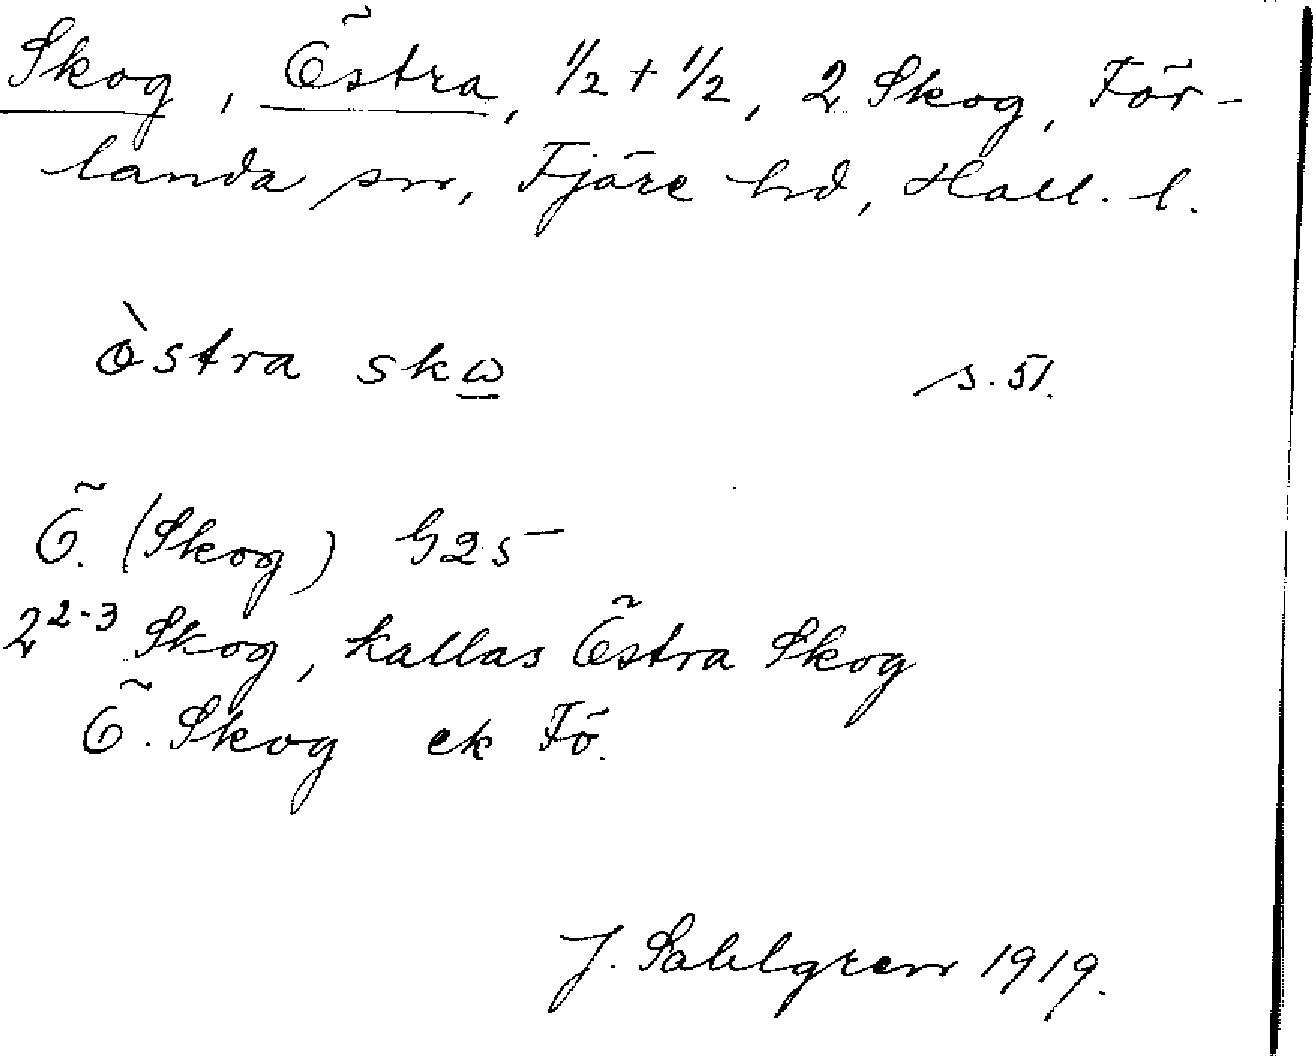 Skog, Östra, 1/2 + 1/2, 2 Skog, För-
landa sn, Fjäre hd, Hall. l.
östra skω s. 51.
Ö. (Skog) G25
2²⁻³ Skog, kallas Östra Skog
Ö. Skog ek Fö.
J. Sahlgren 1919.